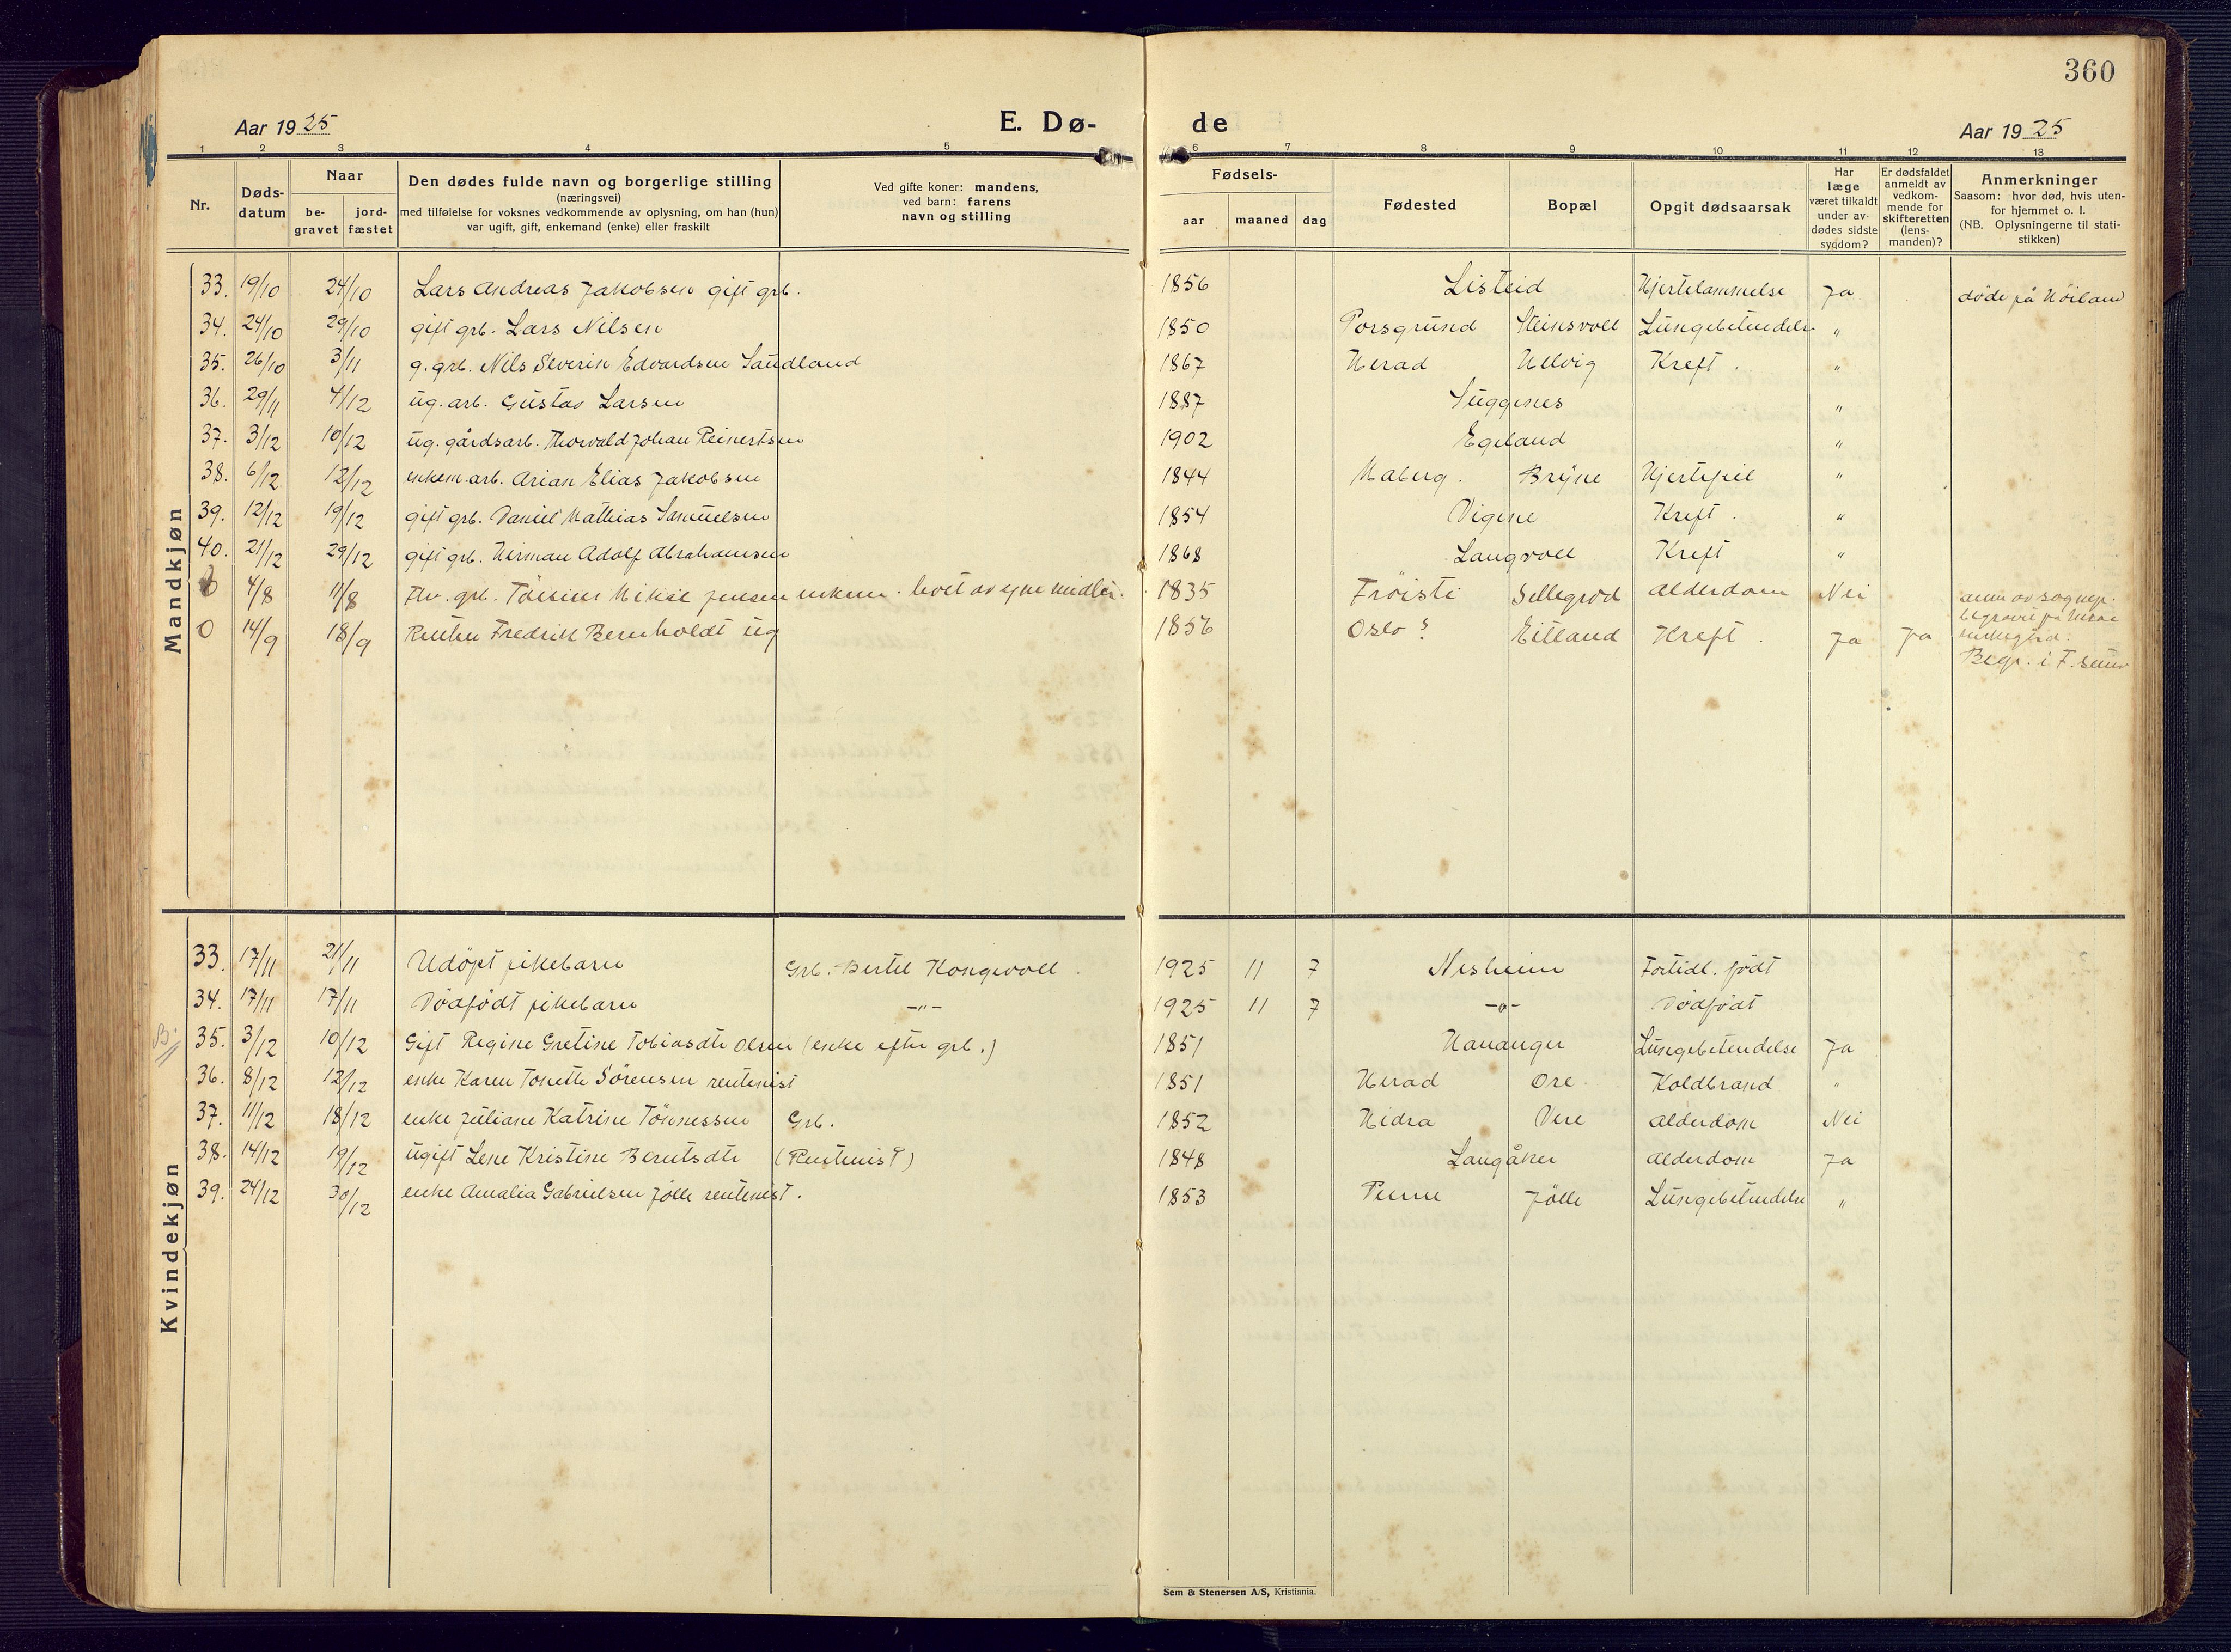 360
Aar 1925 E. Dø- de Aar 1925
1 2 3 4 5 6 7 8 9 10 11 12 13
Nr.
Døds-
datum
Naar
be-
gravet
jord-
fæstet
Den dødes fulde navn og borgerlige stilling
(næringsvei)
med tilføielse for voksnes vedkommende av oplysning, om han (hun)
var ugift, gift, enkemand (enke) eller fraskilt
Ved gifte koner: mandens,
ved barn: farens
navn og stilling
Fødsels-
aar maaned dag
Fødested
Bopæl
Opgit dødsaarsak
Har
læge
været tilkaldt
under av-
dødes sidste
sygdom?
Er dødsfaldet
anmeldt av
vedkom-
mende for
skifteretten
(lens-
manden)?
Anmerkninger
Saasom: hvor død, hvis uten-
for hjemmet o. l.
(NB. Oplysningerne til stati-
stikken)
Mandkjøn
33. 19/10 24/10 Lars Andreas Jakobsen gift grb. 1856 Listeid Hjertelammelse Ja døde på Höiland
34. 24/10 29/10 gift grb. Lars Nilsen 1850 Porsgrund Steinsvoll Lungebetendelse "
35. 26/10 3/11 g. grb. Nils Severin Edvardsen Sandland 1867 Herad Ullvig Kreft. "
36. 29/11 4/12 ug. arb. Gustav Larsen 1887 Suggenes "
37. 3/12 10/12 ug. gårdsarb. Thorvald Johan Reinertsen 1902 Egeland "
38. 6/12 12/12 enkem. arb. Arian Elias Jakobsen 1844 Maberg. Bryne Hjertefeil "
39. 12/12 19/12 gift grb. Daniel Mathias Samuelsen 1854 Vigene Kreft. "
40. 21/12 29/12 gift grb. Herman Adolf Abrahamsen 1868 Langvoll Kreft "
0 4/8 11/8 Fhv. grb. Tönnes Mikal Jensen enkem. levet av egne midler. 1835 Fröisti Sellegrod Alderdom Nei
0 14/9 18/9 Fredrik Bernholdt ug 1856 Oslo? Eitland Kreft. Ja Ja
Begr. i F.
Kvindekjøn
33. 17/11 21/11 Udöpt pikebarn Grb. Bertel Kongevoll. 1925 11 7 Nesheim Fortidl. födt
34. 17/11 17/11 Dödfödt pikebarn -"- 1925 11 7 -"- Dödfödt
B. 35. 3/12 10/12 Gift Regine Gretine Tobiasdtr Olsen (enke efter grb.) 1851 Hananger Lungebetendelse Ja
36. 8/12 12/12 enke Karen Tonette Sörensen rentenist 1851 Herad Ore. Koldbrand "
37. 11/12 18/12 enke Juliane Katrine Tönnessen Grb. 1852 Hidra Vere Alderdom Nei
38. 14/12 19/12 ugift Lene Kristine Berntsdtr (Rentenist) 1848 Langåker Alderdom Ja
39. 24/12 30/12 enke Amalia Gabrielsen Jölle rentenist. 1853 Penne Jölle Lungebetendelse "
Sem & Stenersen A/S, Kristiania.